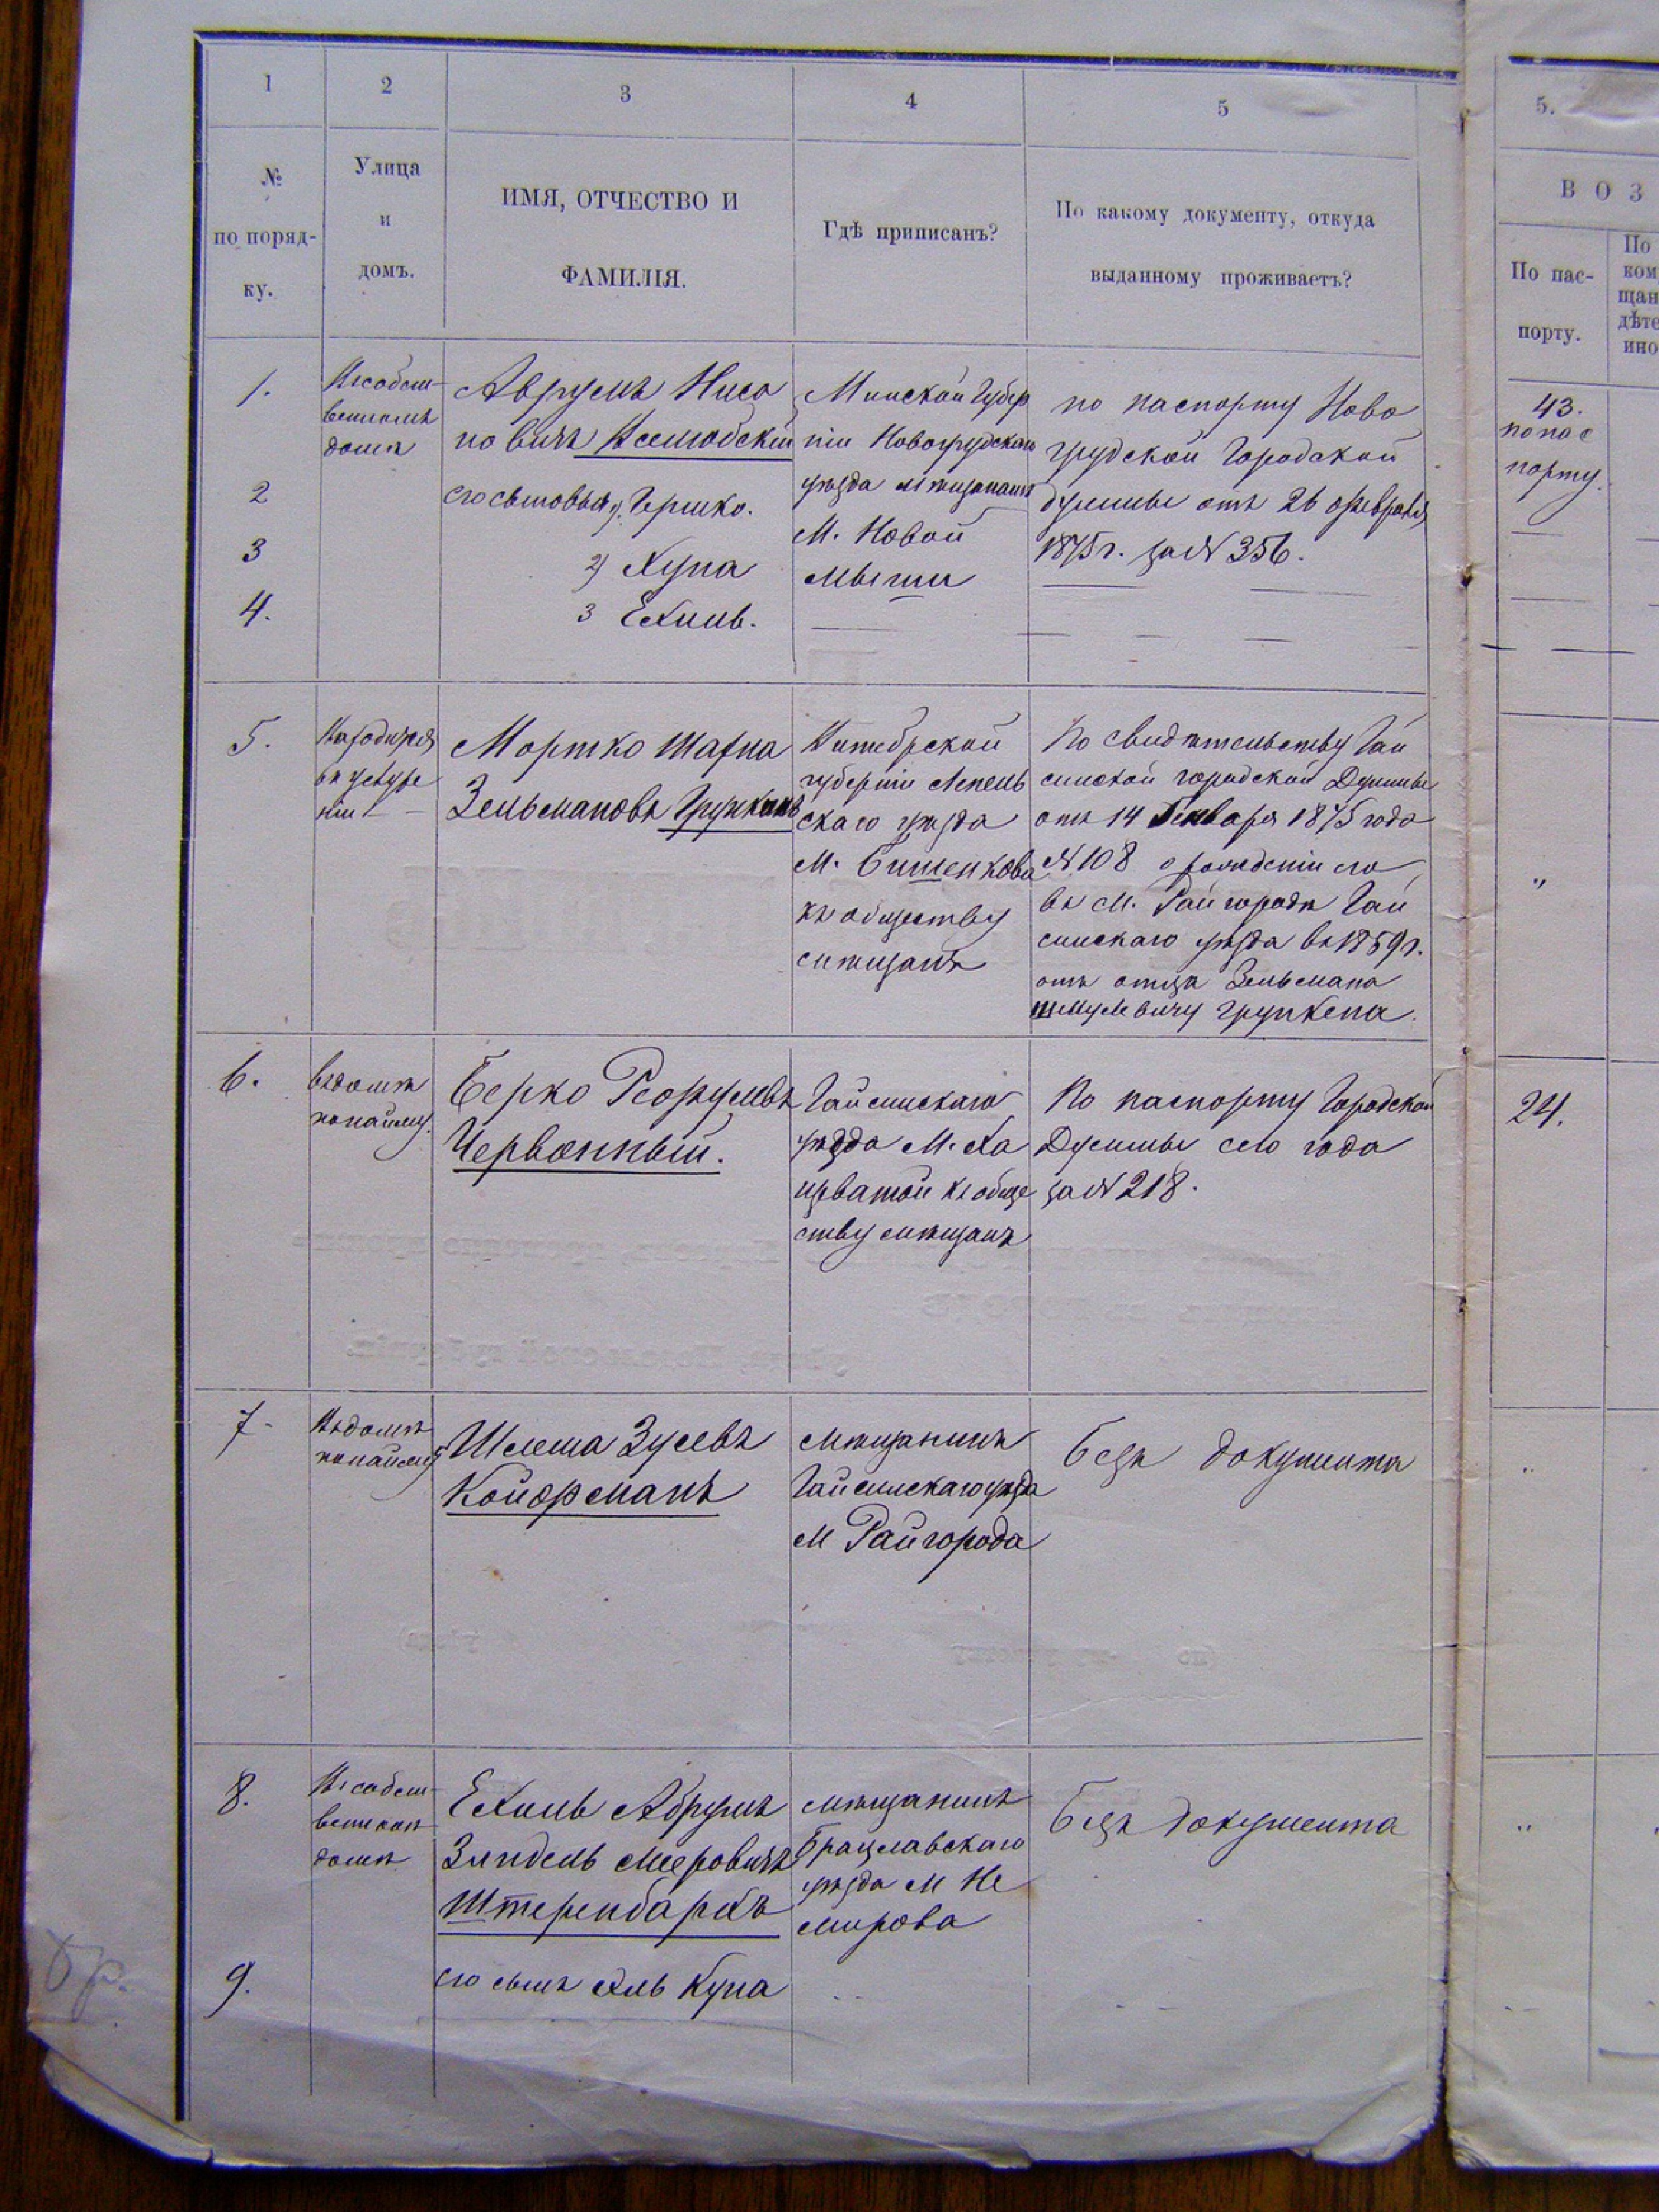 1
2
3
4
5
№
по поряд-
ку.
Улица
и
домъ.
ИМЯ, ОТЧЕСТВО И
ФАМИЛІЯ.
Гдѣ приписанъ?
По какому документу, откуда
выданному проживаетъ?
1.
2
3
4.
Въ собст-
венномъ
домѣ
Аврумъ Нисо
новичъ
его сыновья 1) Гершко.
2) Хуна
3 Ехиль.
Минской Губер
ніи Новогрудскаго
уѣзда мѣщанинъ
М. Новой
Мыши
по паспорту Ново
грудской Городской
думы отъ 26 февраля
1875 г. за № 356.
5.
въ услуже
ніи
Мортко Шахна
Зельмановъ
Витебской
губерніи Лепель
скаго уѣзда
М. Бишенкова
къ обществу
мѣщанъ
По свидѣтельству Гай
синской городской Думы
отъ 14 Января 1875 года
№ 108 о рожденіи его
въ М. Райгородѣ Гай
синскаго уѣзда въ 1859 г.
отъ отца Зельмана
Шмулевичу Грункена.
6.
въ домѣ
по найму.
Берко
Червонный.
Гайсинскаго
уѣзда М. Ха
щеватой къ обще
ству мѣщанъ
По паспорту Городской
Думы сего года
за № 218.
7.
Въ домѣ
по найму
Шлема Зусевъ
Койфманъ
мѣщанинъ
Гайсинскаго уѣзда
М Райгорода
безъ документа
8.
Въ собст-
венном
домѣ
Ехиль Абрумъ
Зиндель Меровичъ
Штеренбархъ
мѣщанинъ
Брацлавскаго
уѣзда М Не
мирова
безъ документа
9.
его сынъ Эль Куна
5.
В О З
По пас-
порту.
По
ком
щан
дѣте
ино
43.
по пас
порту.
24.